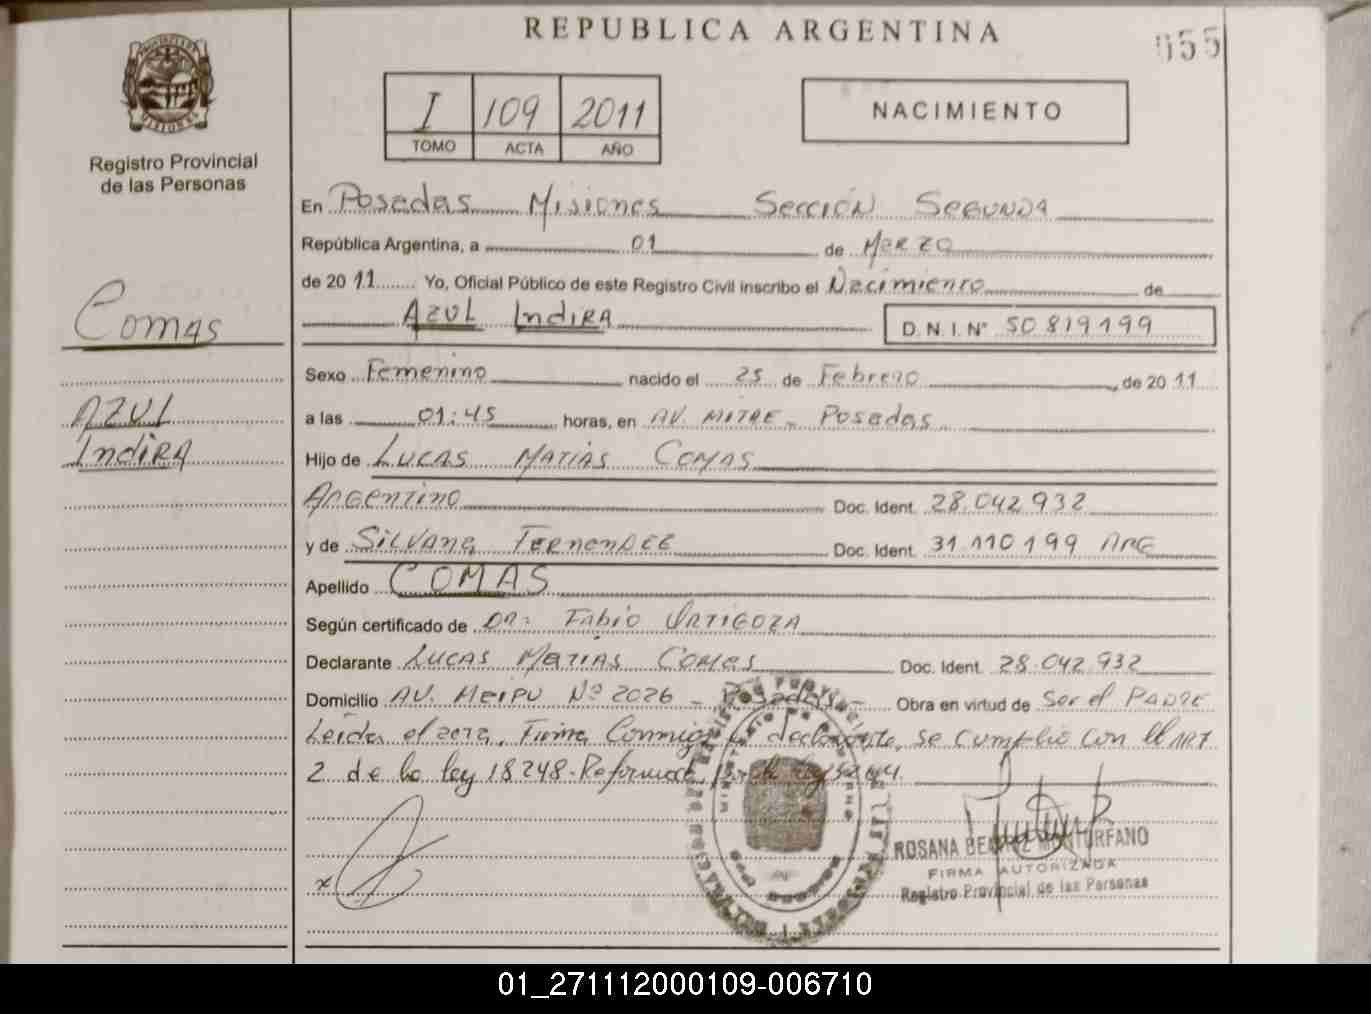 REPUBLICA ARGENTINA
055
I 109 2011
TOMO ACTA AÑO
NACIMIENTO
Registro Provincial
de las Personas
En Posadas Misiones Sección Segunda
República Argentina, a 01 de Marzo
de 2011 Yo, Oficial Público de este Registro Civil inscribo el Nacimiento de
Azul Indira D.N.I.Nº 50 819 199
Comas
Azul
Indira
Sexo Femenino nacido el 25 de Febrero, de 2011
a las 01:45 horas, en AV. MITRE - Posadas
Hijo de Lucas Matías Comas
Argentino Doc. Ident. 28.042.932
y de Silvana Fernandez Doc. Ident. 31 110 199 ARG
Apellido COMAS
Según certificado de DR: Fabio Ortigoza
Declarante Lucas Matías Comas Doc. Ident. 28.042.932
Domicilio AV. Maipu Nº 2026 - Posadas - Obra en virtud de Ser el PADRE
Leida el acta, Firma Conmigo el declarante, se cumplió con el ART
2 de la ley 18248-Reformada
x
ROSANA
FIRMA AUTORIZADA
Registro Provincial de las Personas
01_271112000109-006710